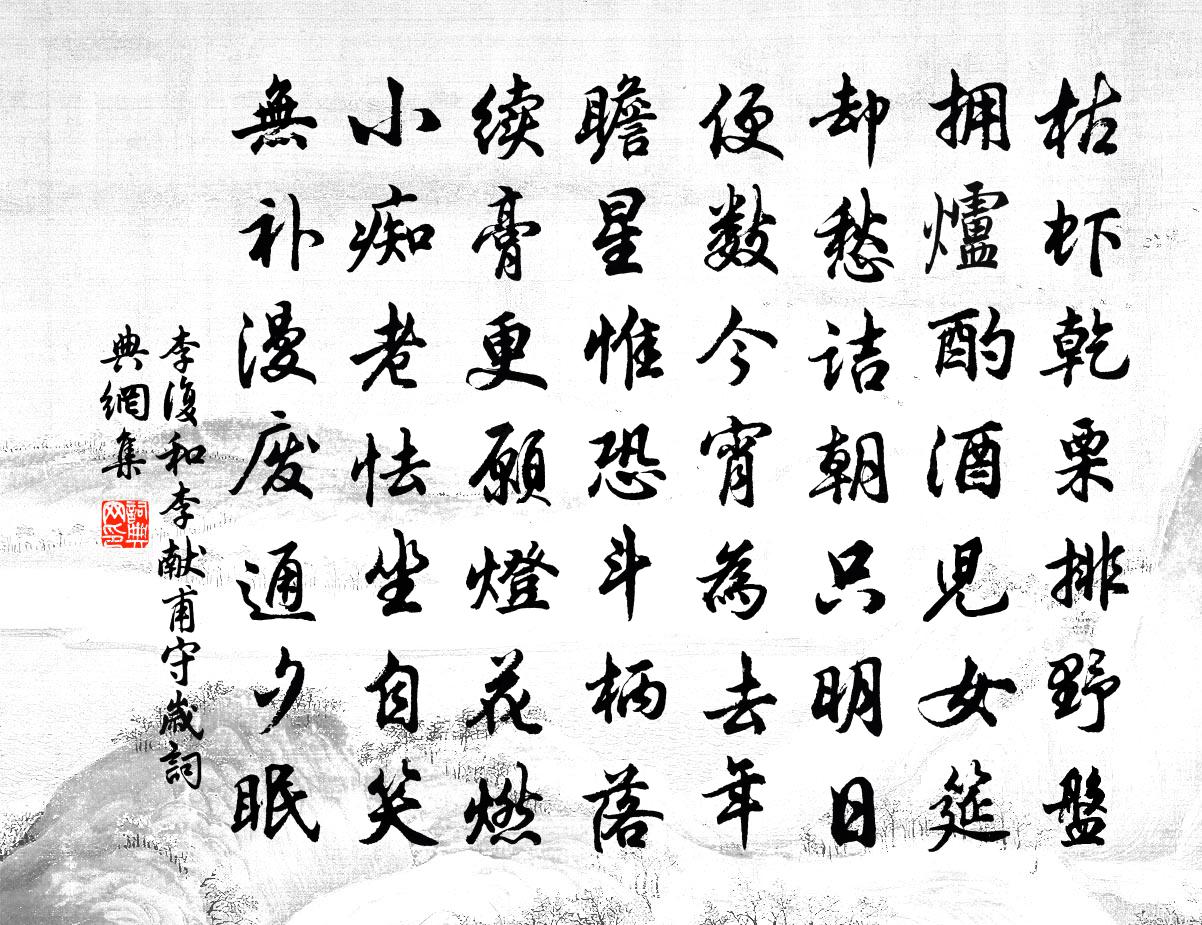 枯虾乾栗排野盤
拥爐酌酒児女筵
却愁诘朝只明日
便数今宵為去年
瞻星惟恐斗柄落
续膏更願燈花燃
小痴老怯坐自笑
無补漫废通夕眠
李復和李献甫守歲詞
典網集
詞典网印